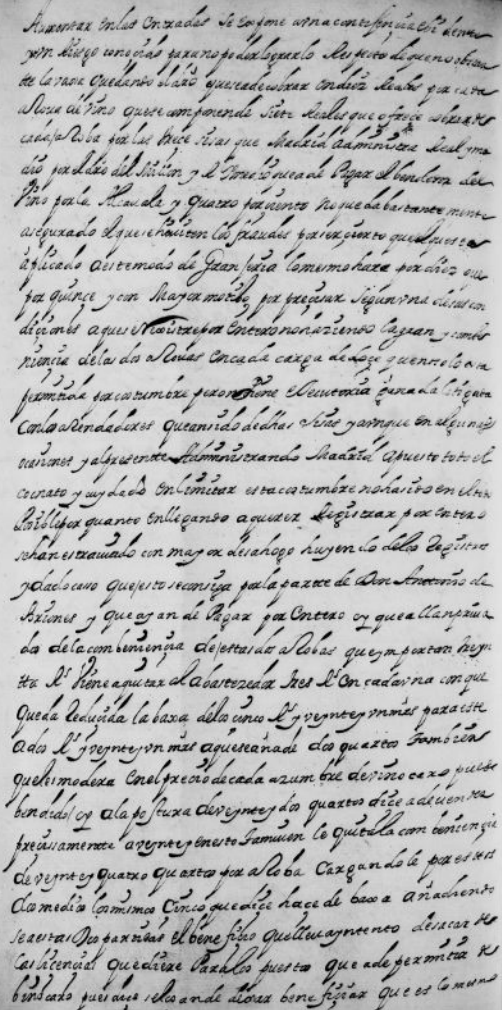 Aumentar en las entradas se expone a una contingencia evidente
y un riesgo conocido para no poder lograrlo Respecto de que no obsta
de la rason quedando el daño que se a de cobrar en diez Reales por cada
aRoua de vino que se componen de siete Reales que ofrece cobrar de
cada aRoba por las trece sisas que Madrid administra Real y me
dio por el dro del Million y el
Vino por la Alcauala y quatro por ciento no queda bastantemente
asegurado el que se heuiten los fraudes por ser cierto que el questa
aplicado a este modo de Granjeria lo mesmo hara por diez que
por quince y con Mayor motibo por precisar segun una de sus con
diciones a que se Rexistre por entero no haziendo la gran y combe
niencia de las dos aRouas en cada carga de doçe que no solo esta
permitida por costumbre pero tiene executoria ganada litigada
con los aRendadores que an sido de dhas sisas y aunque en algunas
ocasiones y al presente Administrando Madrid a puesto todo el
conato y cuydado en limitar esta costumbre no ha sido
posible por quanto en llegando a querer Registrar por entero
se han extrauiado con mayor desahogo huyendo de los Registros
y dado caso que esto se consiga por la parte de Don Antonio de
Briones y que ayan de Pagar por entero y que a
dos de la combeniencia destas dos aRobas que ymportan treyn
ta Rs viene a quitar al Abastezedor tres Rs en cada una con que
queda Reducida la baxa de los cinco Rs y veynte y un mrs para este
a dos Rs y veynte y un mrs a que se añade dos quartos tambien
que le modera en el precio de cada azumbre de vino caro pues
bendiendose oy a la postura de veynte y dos quartos dice a de uender
precisamente a veynte y en esto tamuien le quita la combeniencia
de veynte y quatro quartos por aRoba Cargandole por estos
dos medios los mismos Cinco que dice hace de baxa añadiendo
se a estas dos partidas el benefiçio que lleua yntento de sacar de
las licencias que diere Para los puestos que a de permitir de
bino caro pues